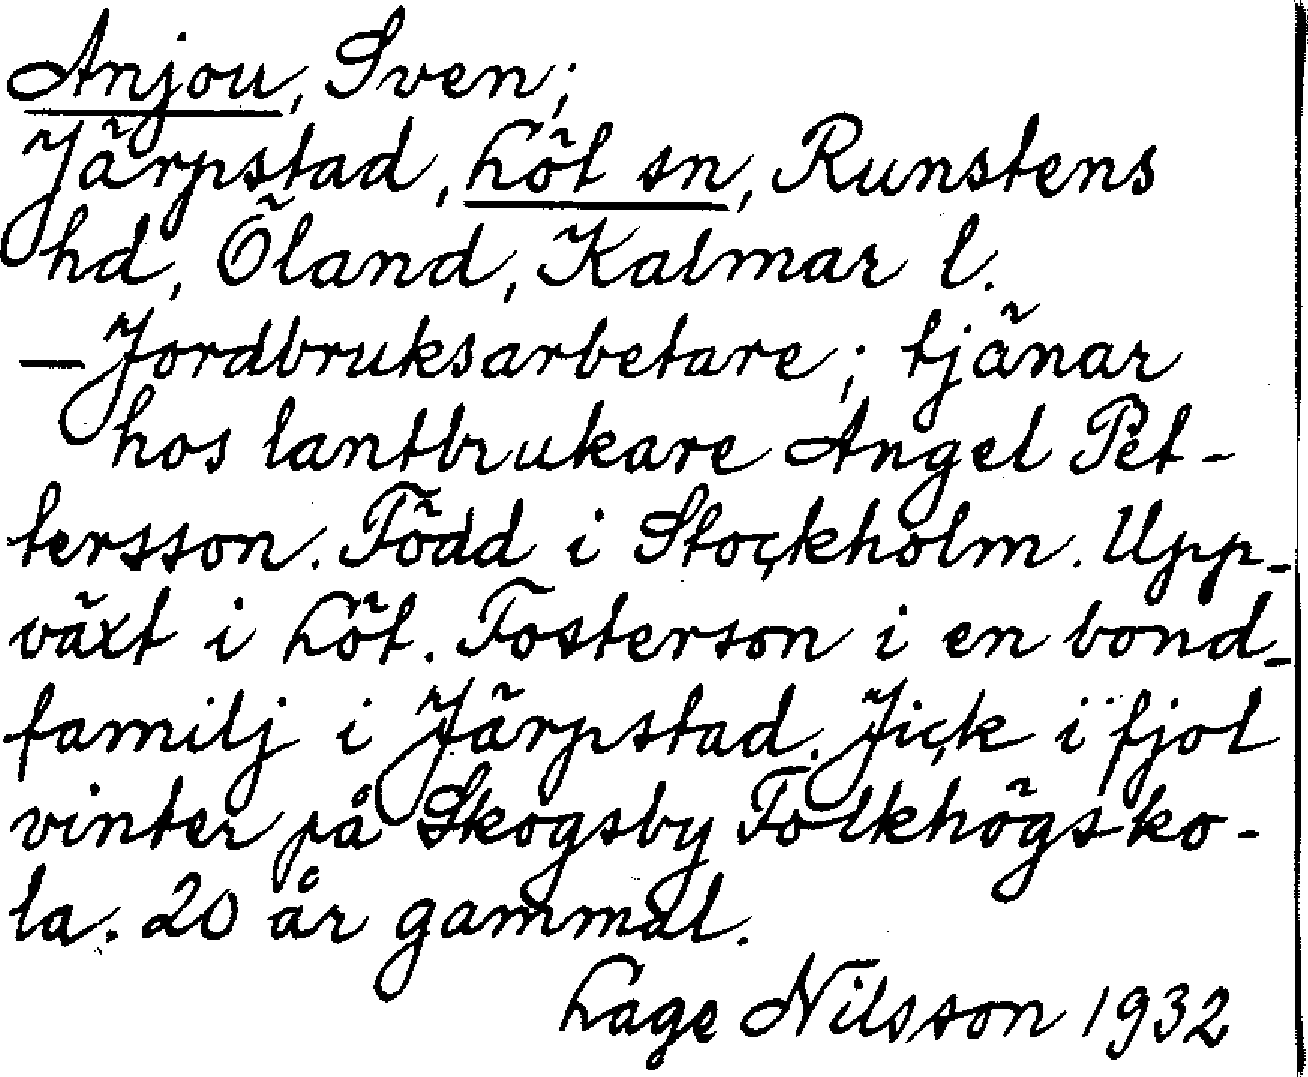 Anjou, Sven;
Järpstad, Löt sn, Runstens
hd, Öland, Kalmar l.
— Jordbruksarbetare; tjänar
hos lantbrukare Angel Pet-
tersson. Född i Stockholm. Upp-
växt i Löt. Fosterson i en bond-
familj i Järpstad. Gick i fjol
vinter på Skogsby Folkhögsko-
la. 20 år gammal.
Lage Nilsson 1932